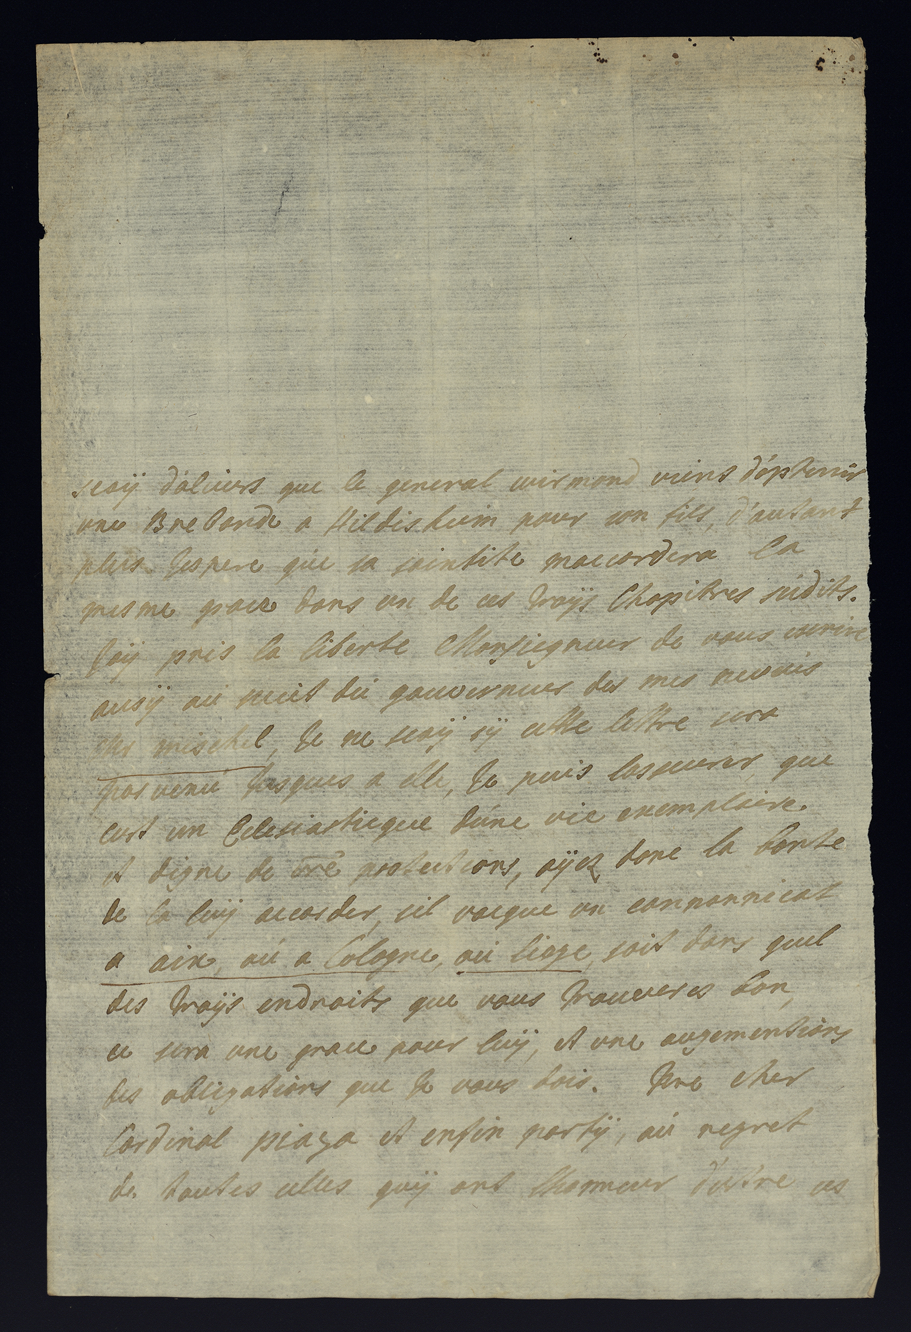 scaÿ d'alieurs que le general wirmond viens d'óptenir
une Brebande a Hildisheim pour son fils, d'autant
plus Jespere que sa saintité maccordera la
mesme grace dans un de ces troÿs Chapitres sudits.
Jaÿ pris la liberté Monsiegneur de vous escrire
ausÿ au suiet du gouverneur des mes neveus
mischel, Je ne scaÿ sÿ cette lettre sera
parvenue Jusques a elle, Je puis lasseurer que
cest un Eclesiasticque d'une vie exemplaire.
et digne de vré protections, aÿez donc la bonte
de la luÿ accorder, sil vacque un cannonnicat
a aix, aú a Cologne, aú liege, soit dans quel
des troÿs endroits que vous trouveres bon,
ce sera une grace pour luÿ, et une augementions
des obligations que Je vous dois. cher
Cardinal piaza et enfin partÿ, aú regret
de toutes celles quÿ ont lhonneur d'éstre ces